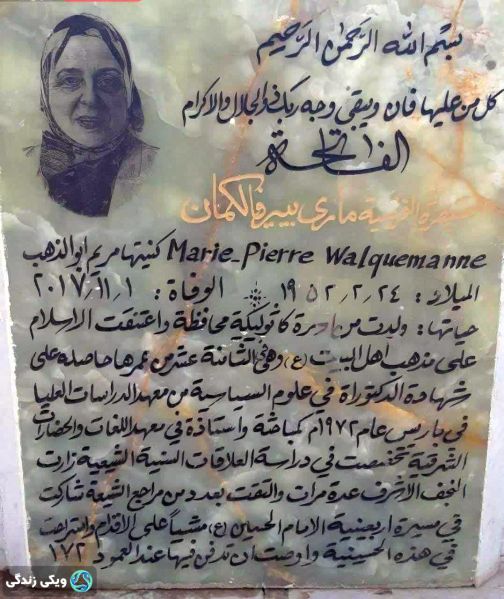 بسم الله الرحمن الرحيم
كل من عليها فان ويبقى وجه ربك ذي الجلال والاكرام
الفاتحة
ماري بيير والكمان
Marie_Pierre Walquemanne كنيتها مريم ابو الذهب
الميلاد : ٢٤ ٢ ١٩٥٢ الوفاة : ١ ١١ ٢٠١٧
حياتها : ولدت من اسرة كاثوليكية محافظة واعتنقت الاسلام
على مذهب اهل البيت (ع) وهي في الثامنة عشر من عمرها حاصله على
شهادة الدكتوراة في علوم السياسية من معهد الدراسات العليا
في باريس عام ١٩٧٢م كباحثة واستاذة في معهد اللغات والحضارات
الشرقية تخصصت في دراسة العلاقات السنية الشيعية زارت
النجف الاشرف عدة مرات والتقت بعدد من مراجع الشيعة شاركت
في مسيرة اربعينية الامام الحسين (ع) مشياً على الاقدام واستراحت
في هذه الحسينية واوصت ان تدفن فيها عند العمود ١٧٢
ویکی زندگی